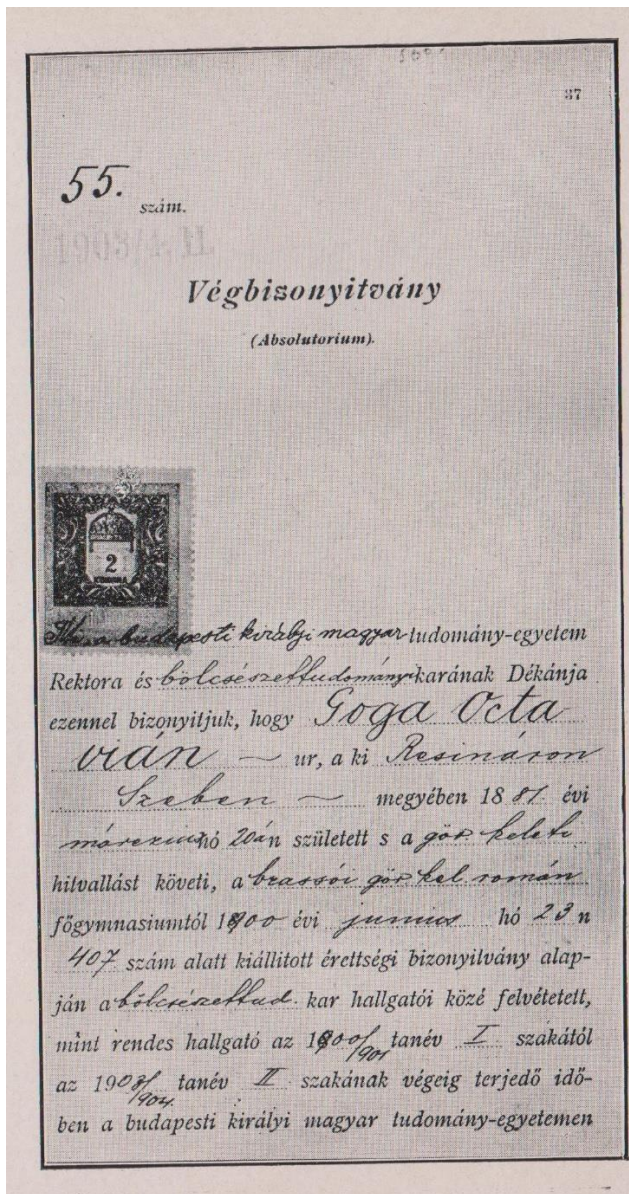 37
55. szám.
1903/4. II.
Végbizonyitvány
(Absolutorium).
2
Mi, a budapesti királyi magyar tudomány-egyetem
Rektora és bölcsészettudományi karának Dékánja
ezennel bizonyitjuk, hogy Goga Octa
vián — ur, a ki Resináron
Szeben — megyében 1881 évi
márczius hó 20án született s a gör keleti
hitvallást követi, a brassói gör kel román
főgymnasiumtól 1900 évi junius hó 23 n
407 szám alatt kiállitott érettségi bizonyitvány alap-
ján a bölcsészettud. kar hallgatói közé felvétetett,
mint rendes hallgató az 1900/1901 tanév I szakától
az 1903/904. tanév II szakának végeig terjedő idő-
ben a budapesti királyi magyar tudomány-egyetemen